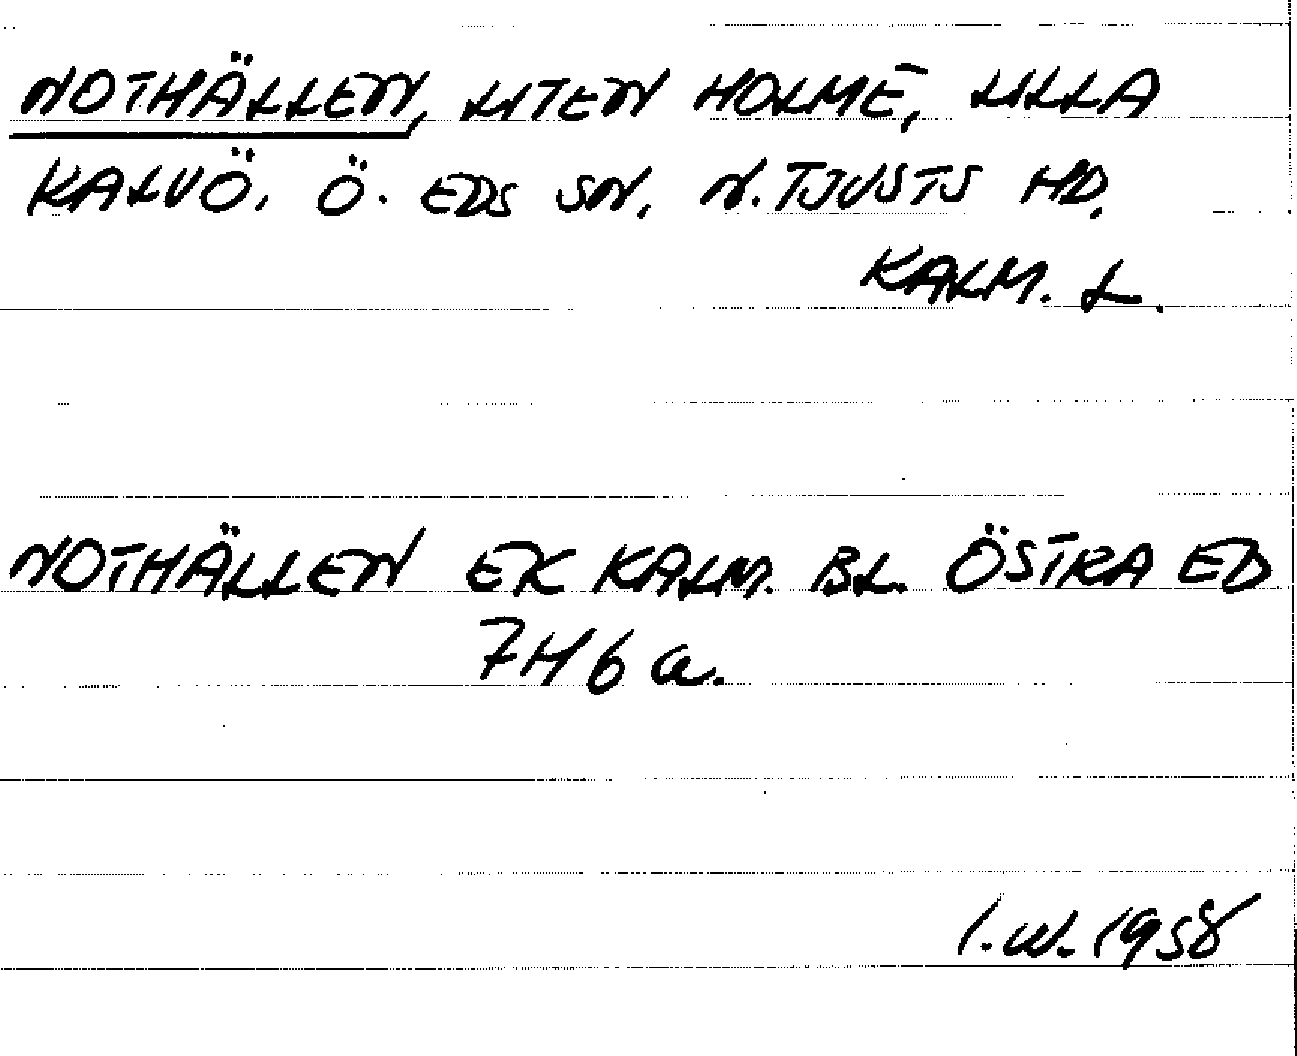 NOTHÄLLEN, LITEN HOLME, LILLA
KALVÖ, Ö. EDS SN, N. TJUSTS HD,
KALM. L.
NOTHÄLLEN EK KALM. BL. ÖSTRA ED
7H6a.
I.W. 1958